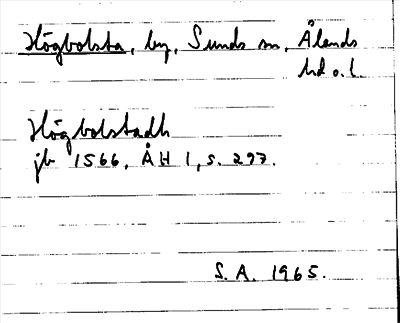 Högbolsta, by, Sunds sn, Ålands
hd o. l.
Högbolstadh
jb 1566, ÅH 1, s. 297.
S.A. 1965.